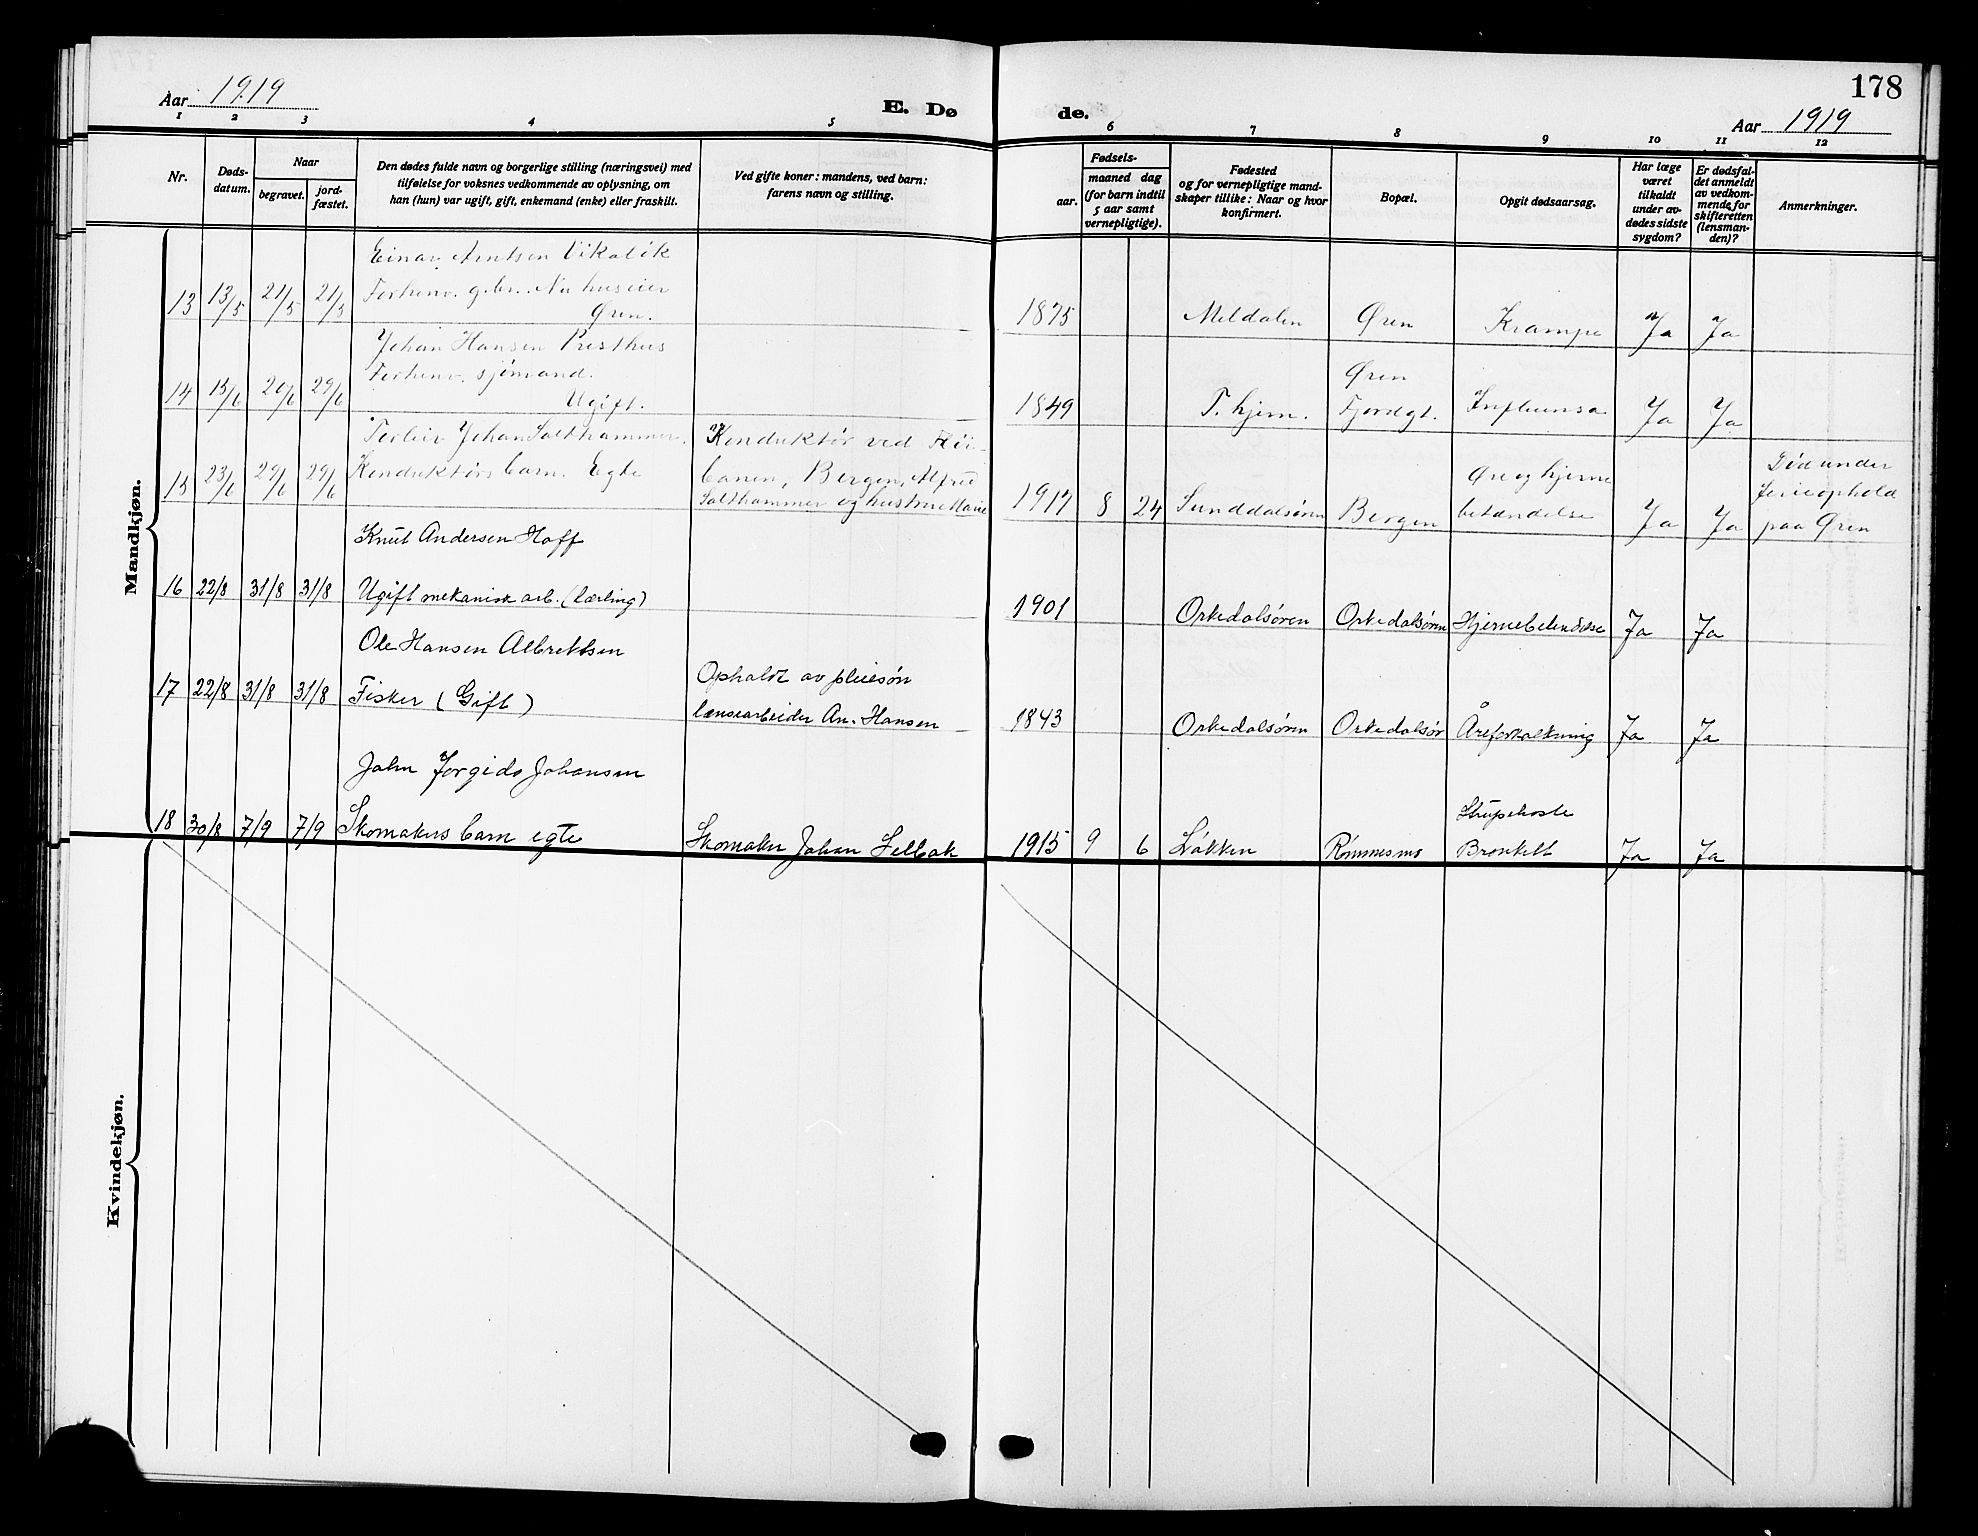 178
Aar 1919
E. Døde.
Aar 1919
1 2 3 4 5 6 7 8 9 10 11 12
Nr.
Døds-
datum.
Naar
begravet.
jord-
fæstet.
Den dødes fulde navn og borgerlige stilling (næringsvei) med
tilføielse for voksnes vedkommende av oplysning, om
han (hun) var ugift, gift, enkemand (enke) eller fraskilt.
Ved gifte koner: mandens, ved barn:
farens navn og stilling.
Fødsels-
aar.
maaned dag
(for barn indtil
5 aar samt
vernepligtige).
Fødested
og for vernepligtige mand-
skaper tillike: Naar og hvor
konfirmert.
Bopæl.
Opgit dødsaarsag.
Har læge
været
tilkaldt
under av-
dødes sidste
sygdom?
Er dødsfal-
det anmeldt
av vedkom-
mende for
skifteretten
(lensman-
den)?
Anmerkninger.
Mandkjøn.
Einar Arntsen
Forhenv. gbr. Nu huseier
Øren.
13 13/5 21/5 21/5
1875 Meldalen Øren Krampe Ja Ja
Johan Hansen Presthus
Forhenv. sjømand.
Ugift.
14 15/6 20/6 29/6
1849 T.hjem. Øren
Fjordgt. Influensa Ja Ja
Torleiv Johan Salthammer.
Konduktørs barn. Egte
15 23/6 29/6 29/6
Konduktør ved Fløi-
banen, Bergen, Alfred
Salthammer og hustru Marie
1917 8 24 Sunddalsøren Bergen
Øre og hjerne
betændelse Ja Ja
Død under
ferieophold
paa Øren
Knut Andersen Hoff
16 22/8 31/8 31/8 Ugift mekanisk arb. (lærling)
1901 Orkedalsøren Orkedalsøren Hjernebetendelse Ja Ja
Ole Hansen Albrektsen
17 22/8 31/8 31/8 Fisker (Gift)
Opholdt av pleiesøn
lænsearbeider An. Hansen
1843 Orkedalsøren Orkedalsør Åreforkalkning Ja Ja
John Johansen
18 30/8 7/9 7/9 Skomakers barn egte
Skomaker Johan Selbak
1915 9 6 Løkken Rømmesmo
Strupehoste
Bronkitt Ja Ja
Kvindekjøn.